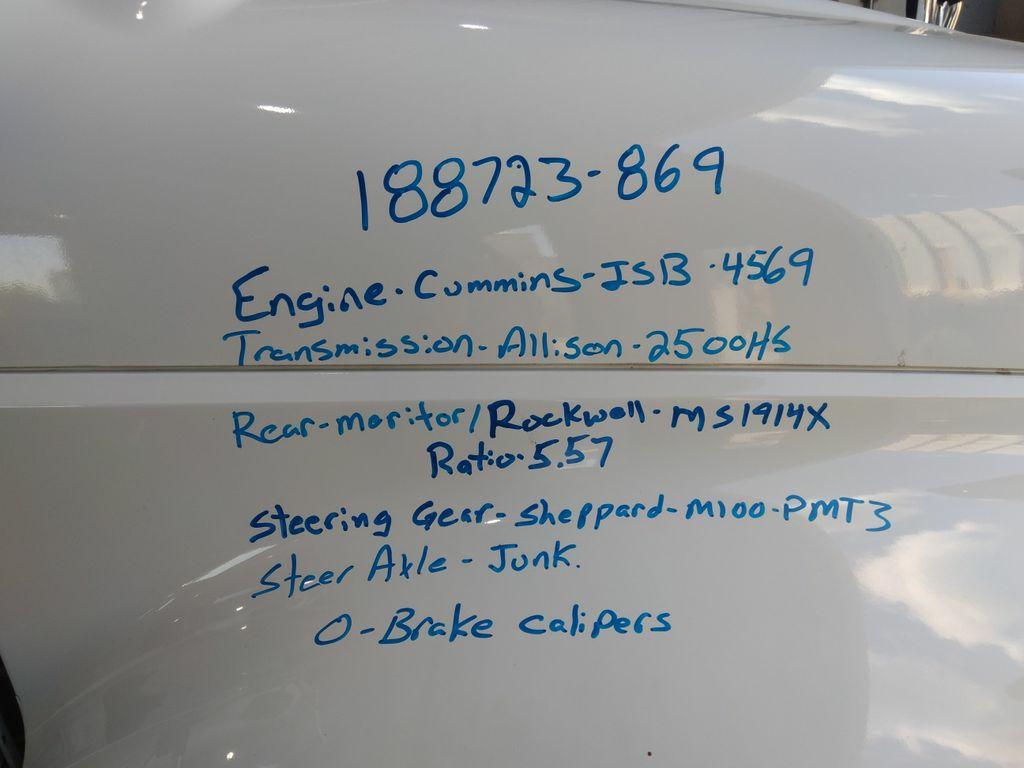 188723-869
Engine. Cummins-ISB.4569
Transmission-Allison-2500HS
Rear-meritor/Rockwell-MS1914X
Ratio.5.57
Steering Gear-Sheppard-M100-PMT3
Steer Axle-Junk.
0-Brake calipers